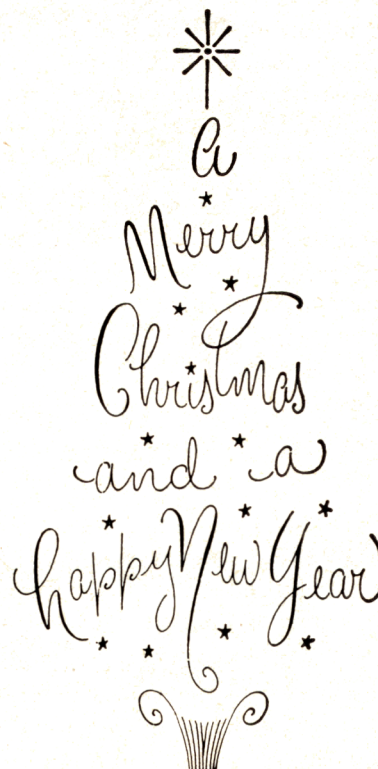 a
Merry
Christmas
and a
happy New Year